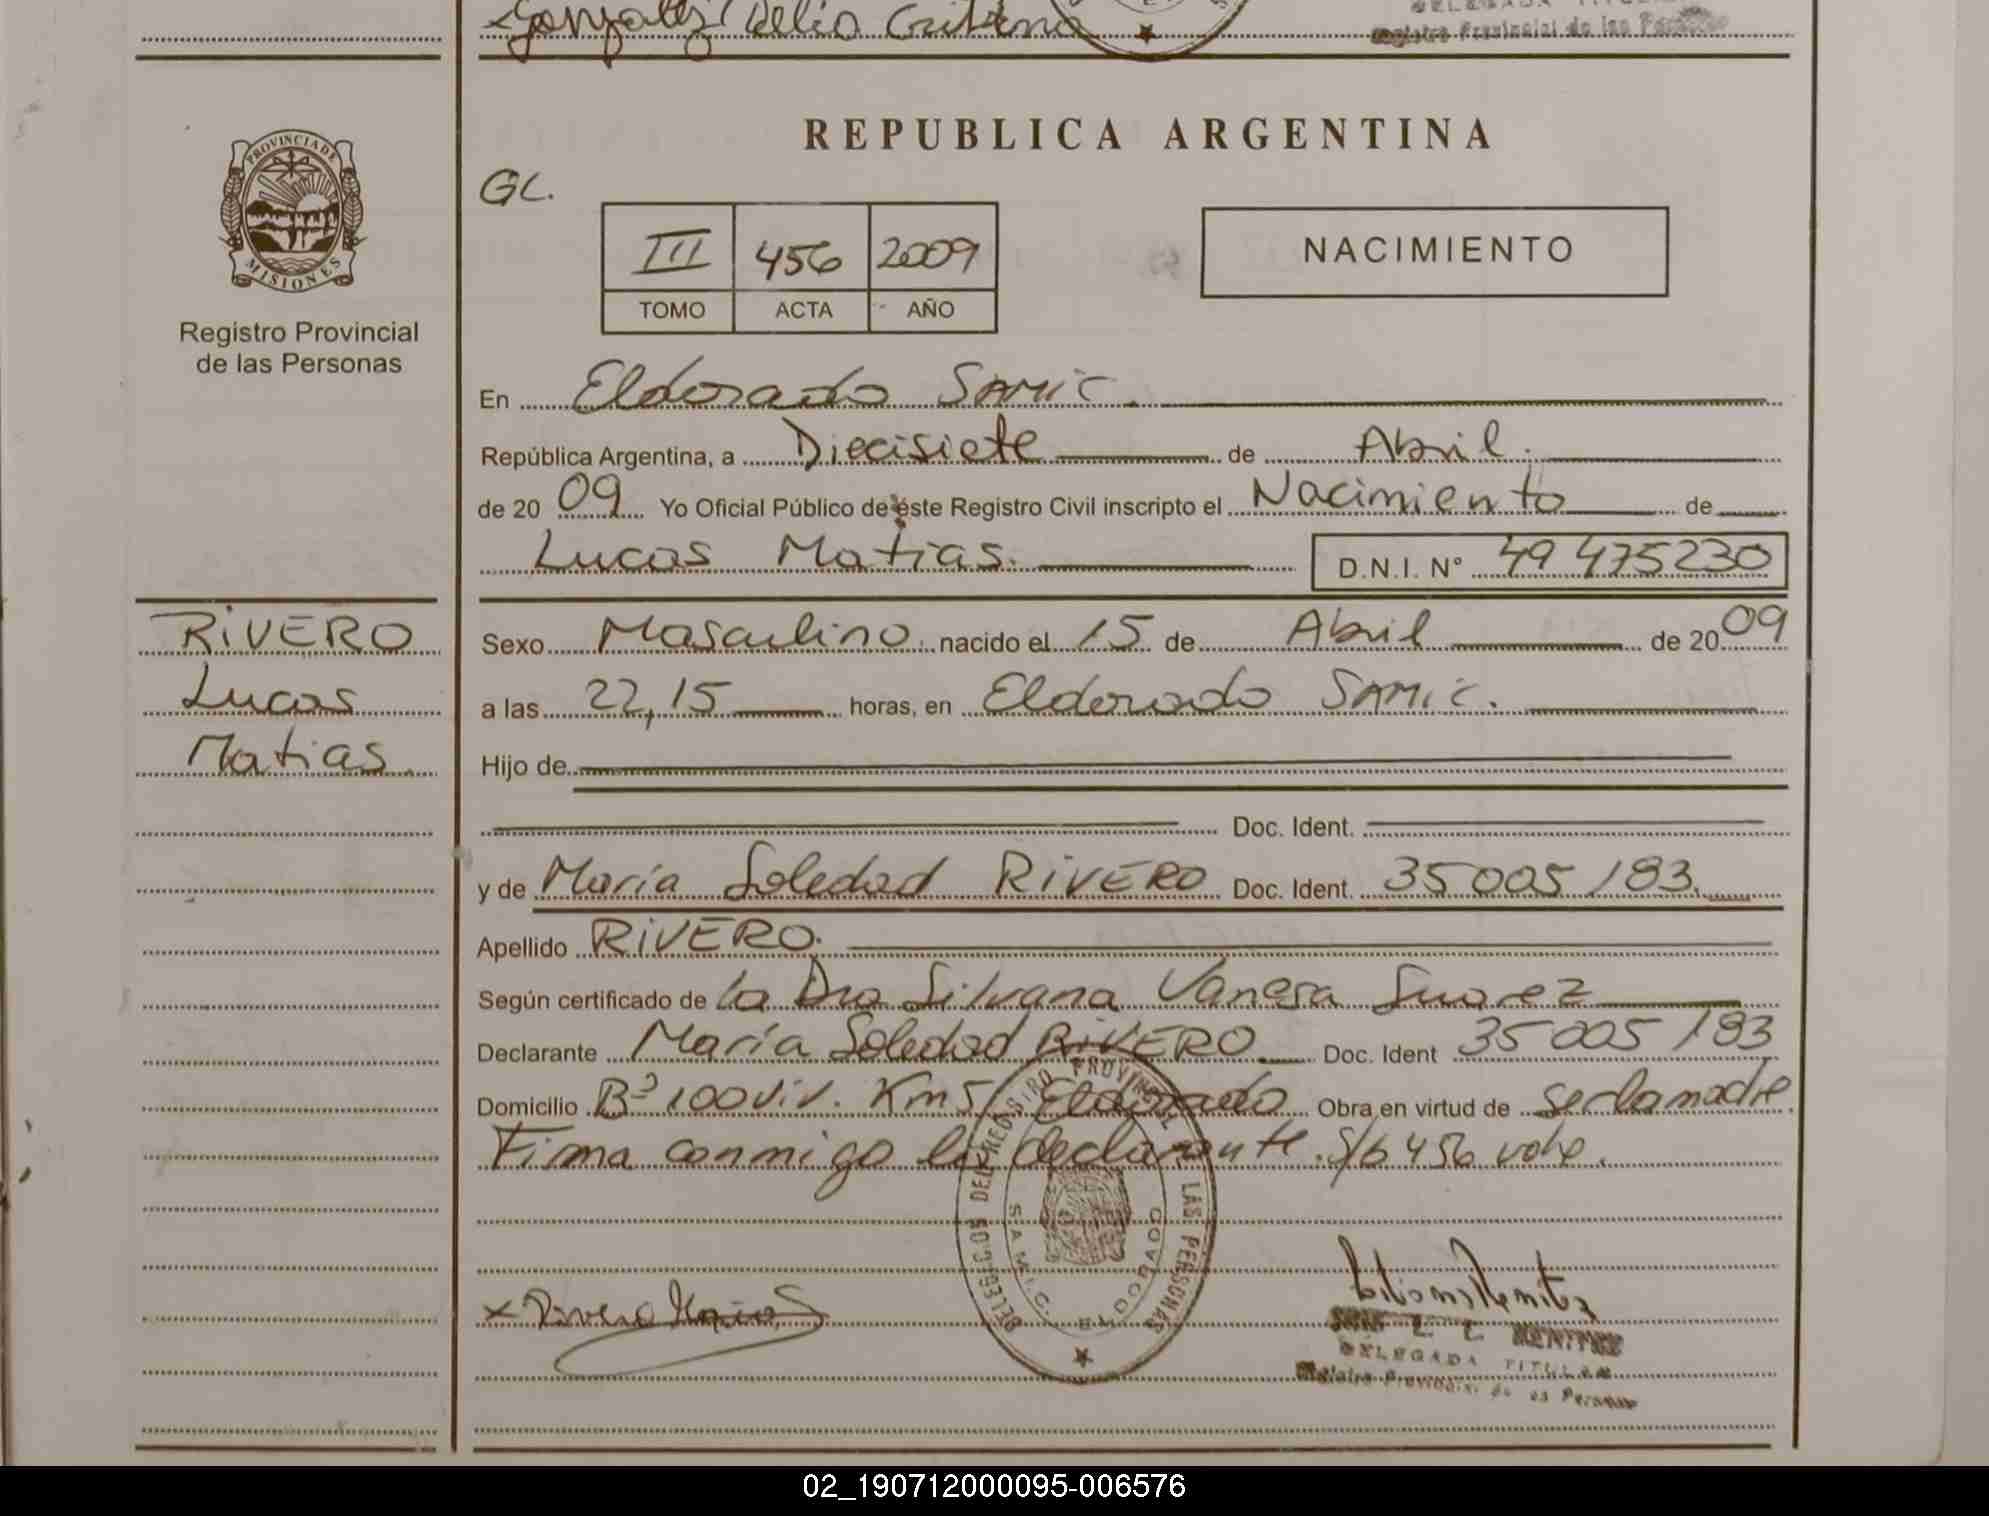 Gonzalez Delia Cristina
DELEGADA TITULAR
Registro Provincial de las Personas
REPUBLICA ARGENTINA
PROVINCIA DE
MISIONES
GC.
III 456 2009
TOMO ACTA AÑO
NACIMIENTO
Registro Provincial
de las Personas
En Eldorado SAMIC.
República Argentina, a Diecisiete de Abril.
de 2009 Yo Oficial Público de este Registro Civil inscripto el Nacimiento de
Lucas Matias. D.N.I. N° 49 475230
RIVERO
Lucas
Matias.
Sexo Masculino. nacido el 15 de Abril de 2009
a las 22,15 horas, en Eldorado SAMIC.
Hijo de
Doc. Ident.
y de María Soledad RIVERO Doc. Ident. 35 005 183.
Apellido RIVERO.
Según certificado de la Dra Silvana Vanesa Suarez
Declarante María Soledad RIVERO Doc. Ident 35 005 183
Domicilio B° 100 viv. Km 5 Eldorado Obra en virtud de ser la madre
Firma conmigo la declarante. S/b 456 vale.
DELEGACIONES DEL REGISTRO PROVINCIAL DE LAS PERSONAS
S.A.M.I.C. ELDORADO
x Rivero Maria S
BENITEZ
DELEGADA TITULAR
Registro Provincial de las Personas
02_190712000095-006576